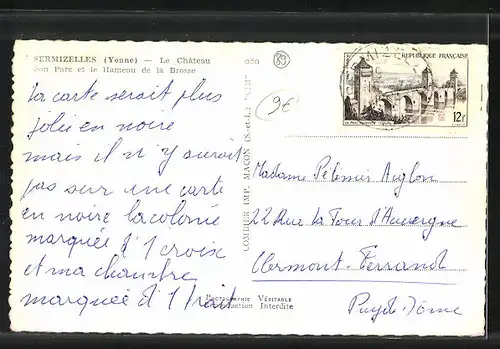 SERMIZELLES (Yonne) — Le Château
Son Parc et le Hameau de la Brosse
89
RÉPUBLIQUE FRANÇAISE
12F
9€
La carte serait plus
jolie en noire
mais il n'y aurait
pas sur une carte
en noire la colonie
marquée d'1 croix
et ma chambre
marquée d'1 trait
COMBIER IMP. MACON (S.-et-L.) "CIM"
Madame Pélinier Aiglon
22 Rue La Tour d'Auvergne
Clermont-Ferrand
Puy de Dôme
Photographie Véritable
Reproduction Interdite